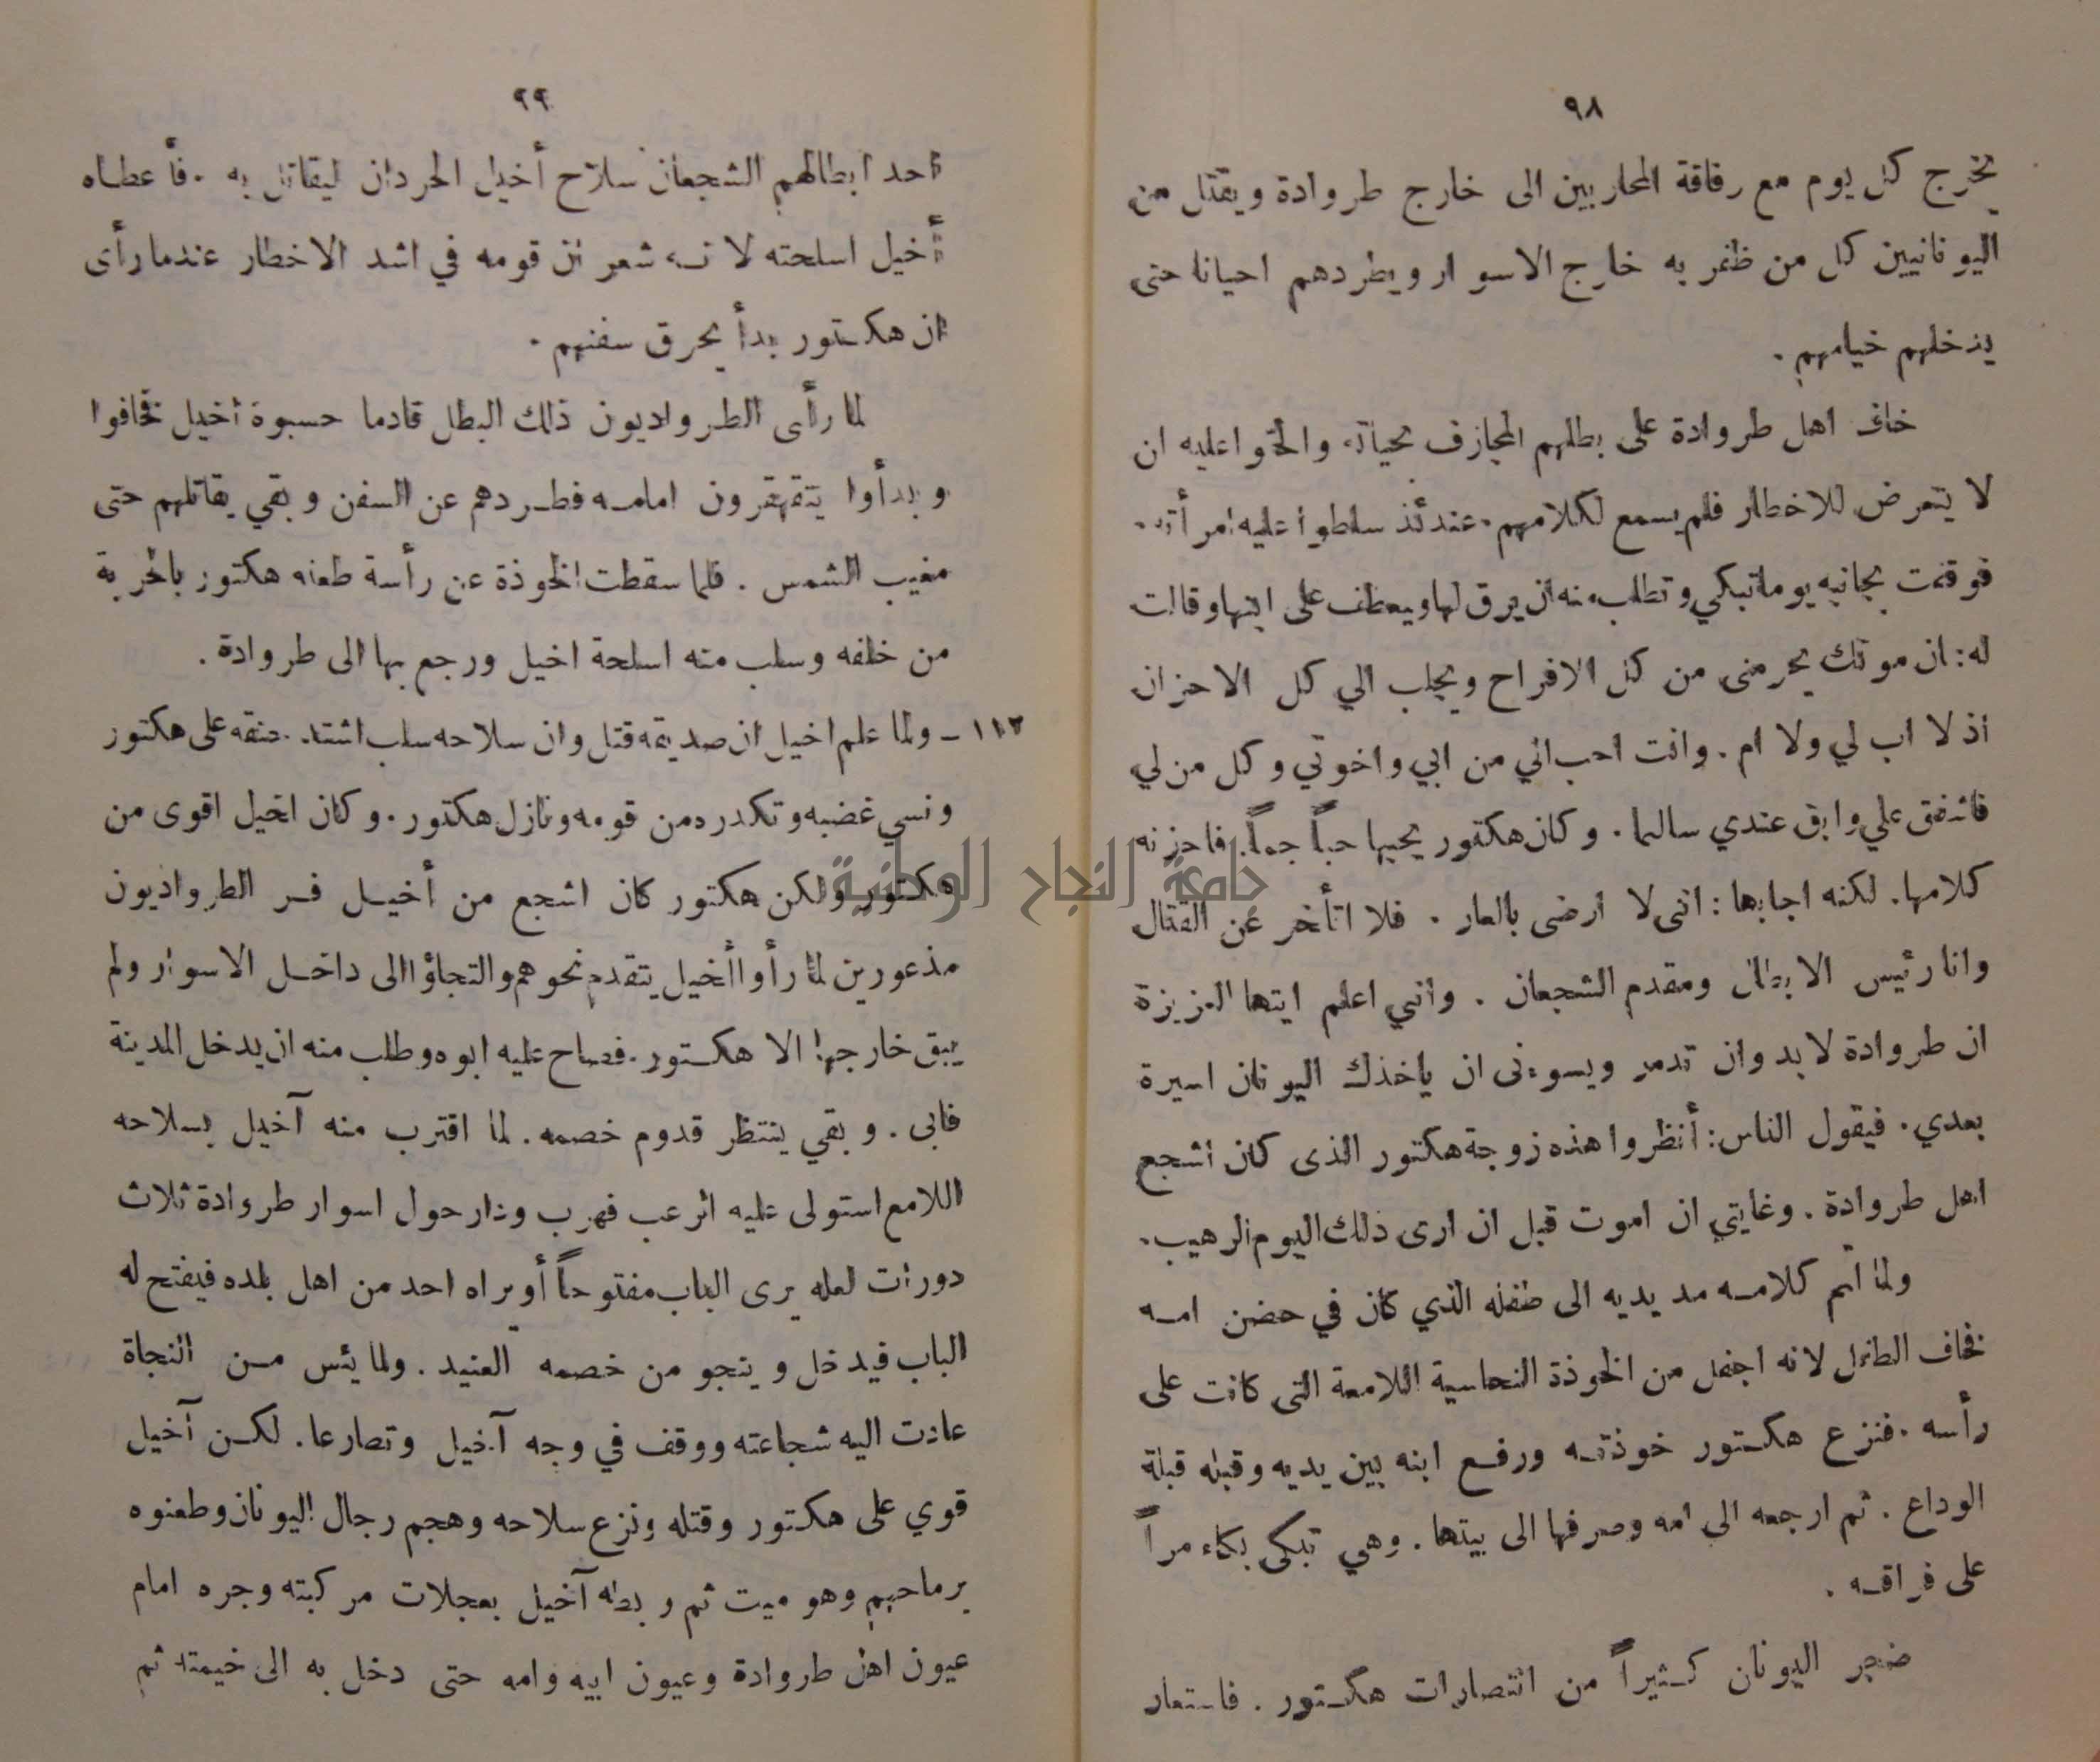 ٩٨
يخرج كل يوم مع رفاقة المحاربين الى خارج طروادة ويقتل من
اليونانيين كل من ظفر به خارج الاسوار ويطردهم احيانا حتى
يدخلهم خيامهم .
خاف اهل طروادة على بطلهم المجازف بحياته والحوا عليه ان
لا يتعرض للاخطار فلم يسمع لكلامهم . عندئذ سلطوا عليه امرأته .
فوقفت بجانبه يوما تبكي وتطلب منه ان يرق لها ويعطف على ابنها وقالت
له : ان موتك يحرمنى من كل الافراح ويجلب الي كل الاحزان
اذ لا اب لي ولا ام . وانت احب الي من ابي واخوتي وكل من لي
فاشفق علي وابق عندي سالما . وكان هكتور يحبها حباً جماً . فاحزنه
كلامها . لكنه اجابها : انى لا ارضى بالعار . فلا اتأخر عن القتال
وانا رئيس الابطال ومقدم الشجعان . وانني اعلم ايتها العزيزة
ان طروادة لا بد وان تدمر ويسوءنى ان ياخذك اليونان اسيرة
بعدي . فيقول الناس : أنظروا هذه زوجة هكتور الذى كان اشجع
اهل طروادة . وغايتي ان اموت قبل ان ارى ذلك اليوم الرهيب .
ولما اتم كلامه مد يديه الى طفله الذي كان في حضن امه
فخاف الطفل لانه اجفل من الخوذة النحاسية اللامعة التى كانت على
رأسه . فنزع هكتور خوذته ورفع ابنه بين يديه وقبله قبلة
الوداع . ثم ارجعه الى امه وصرفها الى بيتها . وهي تبكى بكاء مراً
على فراقه .
ضجر اليونان كثيراً من انتصارات هكتور . فاستعار
٩٩
احد ابطالهم الشجعان سلاح أخيل الحردان ليقاتل به . فأعطاه
أخيل اسلحته لانه شعر ان قومه في اشد الاخطار عندما رأى
ان هكتور بدأ يحرق سفنهم .
لما رأى الطرواديون ذلك البطل قادما حسبوة اخيل فخافوا
وبدأوا يتقهقرون امامه فطردهم عن السفن وبقي يقاتلهم حتى
مغيب الشمس . فلما سقطت الخوذة عن رأسة طعنه هكتور بالحربة
من خلفه وسلب منه اسلحة اخيل ورجع بها الى طروادة .
١١٢ – ولما علم اخيل ان صديقه قتل وان سلاحه سلب اشتد حنقه على هكتور
ونسي غضبه وتكدره من قومه ونازل هكتور . وكان اخيل اقوى من
هكتور ولكن هكتور كان اشجع من أخيل فر الطرواديون
مذعورين لما رأوا أخيل يتقدم نحوهم والتجاؤا الى داخل الاسوار ولم
يبق خارجها الا هكتور . فصاح عليه ابوه وطلب منه ان يدخل المدينة
فابى . وبقي ينتظر قدوم خصمه . لما اقترب منه آخيل بسلاحه
اللامع استولى عليه الرعب فهرب ودار حول اسوار طروادة ثلاث
دورات لعله يرى الباب مفتوحاً أو يراه احد من اهل بلده فيفتح له
الباب فيدخل وينجو من خصمه العنيد . ولما يئس من النجاة
عادت اليه شجاعته ووقف في وجه آخيل وتصارعا . لكن آخيل
قوي على هكتور وقتله ونزع سلاحه وهجم رجال اليونان وطعنوه
برماحهم وهو ميت ثم ربطه آخيل بعجلات مركبته وجره امام
عيون اهل طروادة وعيون ابيه وامه حتى دخل به الى خيمته ثم
جامعة النجاح الوطنية